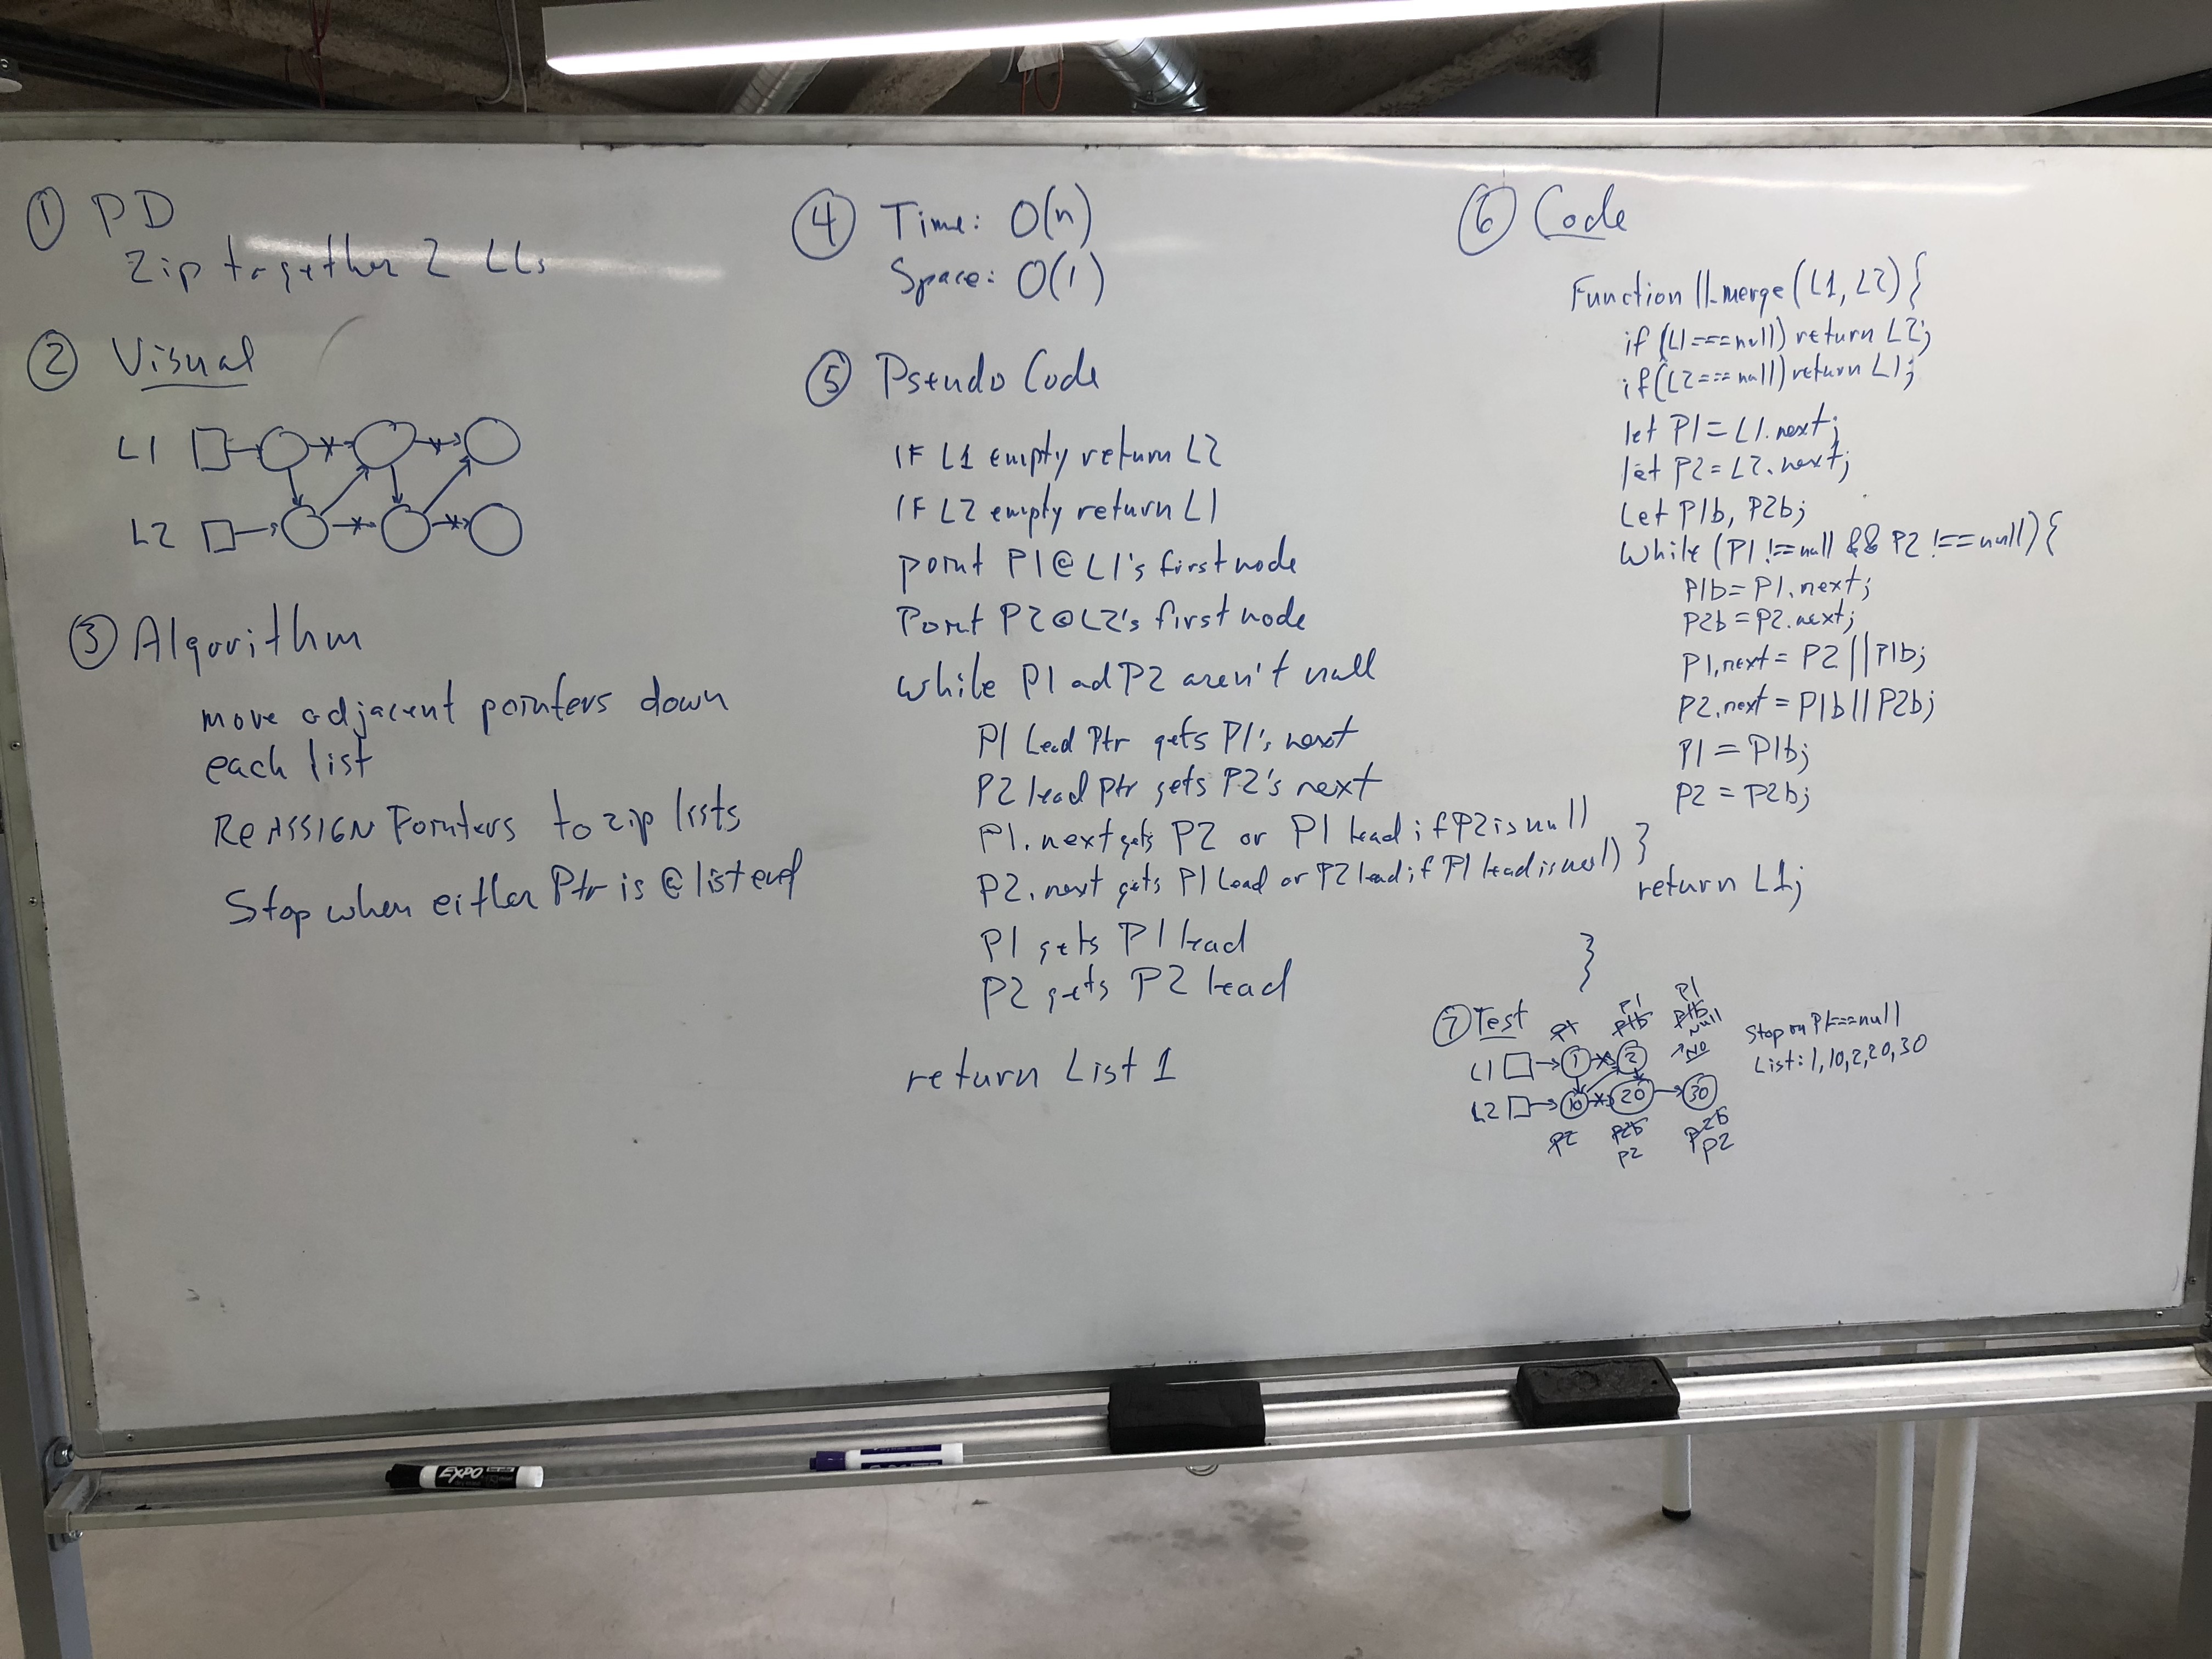 ① PD
Zip together 2 LLs
② Visual
L1
L2
③ Algorithm
move adjacent pointers down
each list
ReASSIGN Pointers to zip lists
Stop when either Ptr is @ list end
④ Time: O(n)
Space: O(1)
⑤ Pseudo Code
IF L1 empty return L2
IF L2 empty return L1
point P1 @ L1's first node
Point P2 @ L2's first node
while P1 ad P2 aren't null
P1 Lead Ptr gets P1's next
P2 lead ptr gets P2's next
P1.next gets P2 or P1 lead if P2 is null
P2.next gets P1 lead or P2 lead if P1 lead is null
P1 gets P1 lead
P2 gets P2 lead
return List 1
⑥ Code
Function ll_merge(L1, L2) {
if (L1===null) return L2;
if (L2===null) return L1;
let P1 = L1.next;
let P2 = L2.next;
Let P1b, P2b;
While (P1 !== null && P2 !== null) {
P1b = P1.next;
P2b = P2.next;
P1.next = P2 || P1b;
P2.next = P1b || P2b;
P1 = P1b;
P2 = P2b;
}
return L1;
}
⑦ Test
P1 P1 P1
P1b P1b
Null
L1 1 2 NO
L2 10 20 30
P2 P2b P2b
P2 P2
Stop on P1===null
List: 1, 10, 2, 20, 30
EXPO